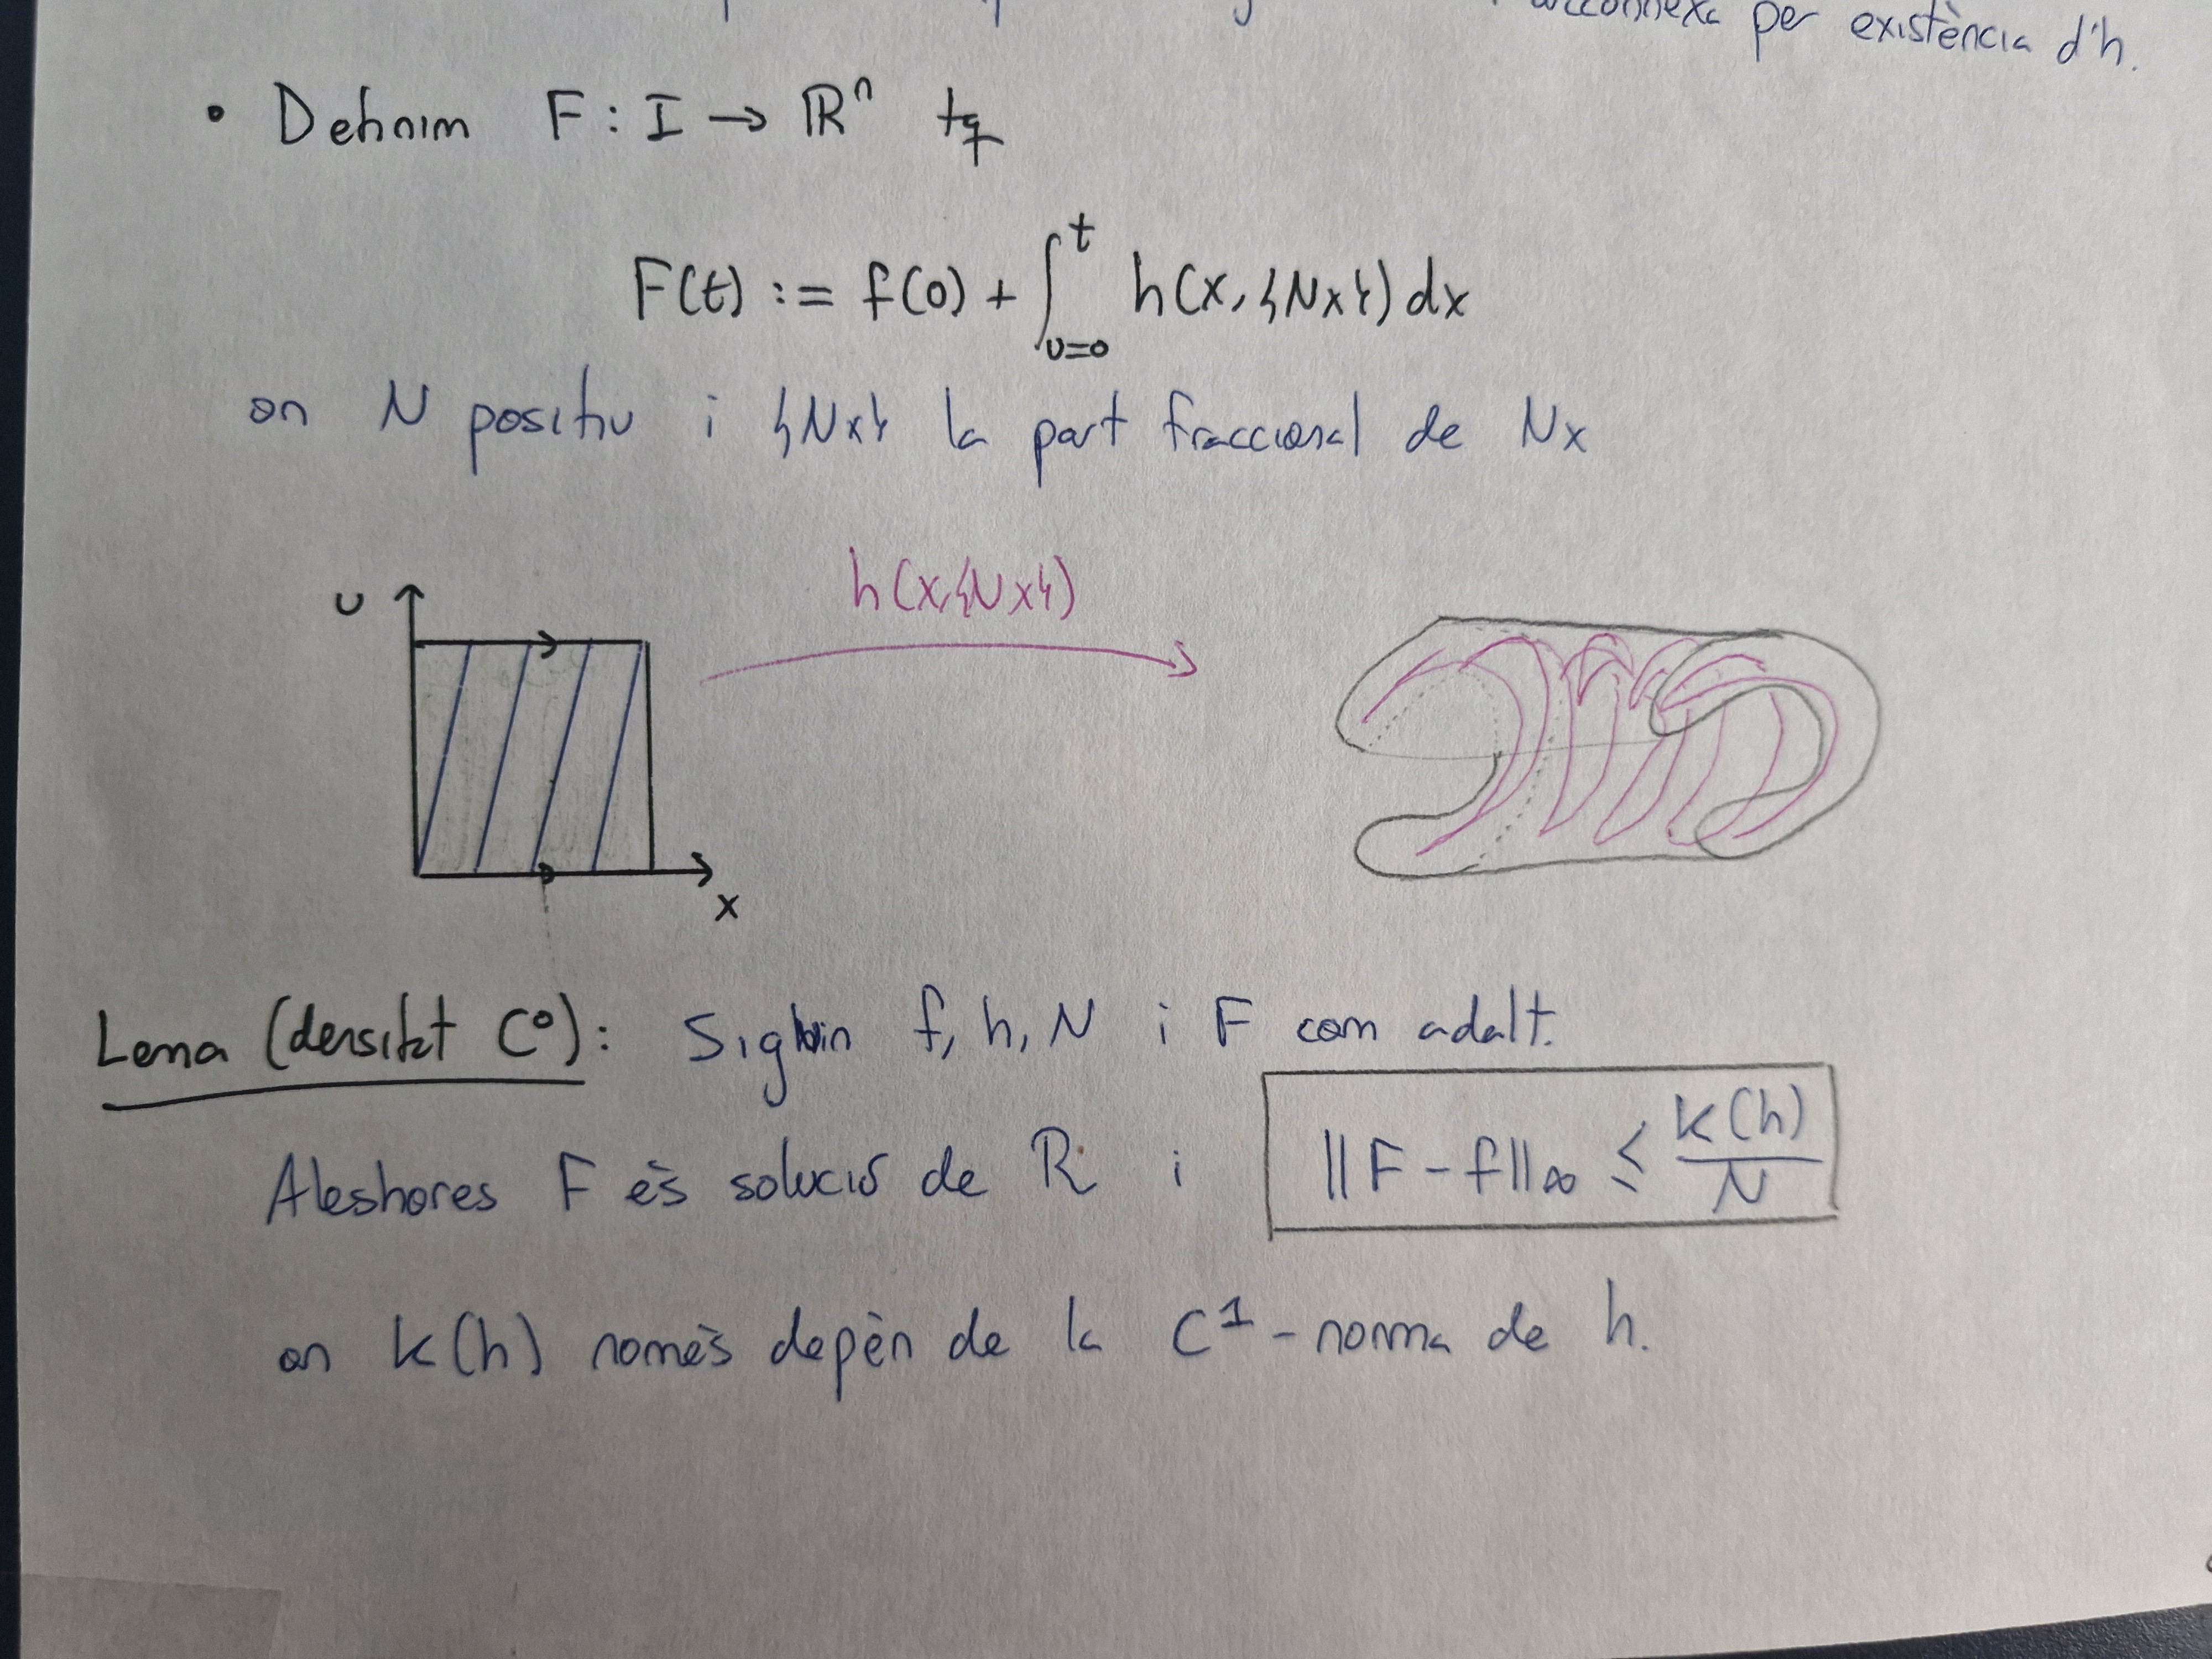 per existència d'h.
• Definim F : I → ℝⁿ tq
F(t) := f(0) + ∫_{u=0}^{t} h(x, {Nx}) dx
on N positiu i {Nx} la part fraccional de Nx
h(x,{Nx})
u
x
Lema (densitat C⁰): Siguin f, h, N i F com adalt.
Aleshores F és solució de R i ‖F - f‖∞ ≤ K(h)/N
on K(h) només depèn de la C¹-norma de h.